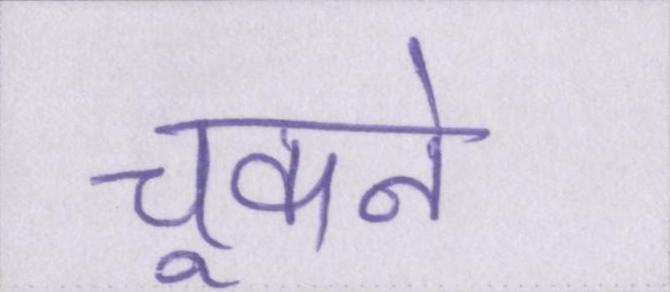 चूकने